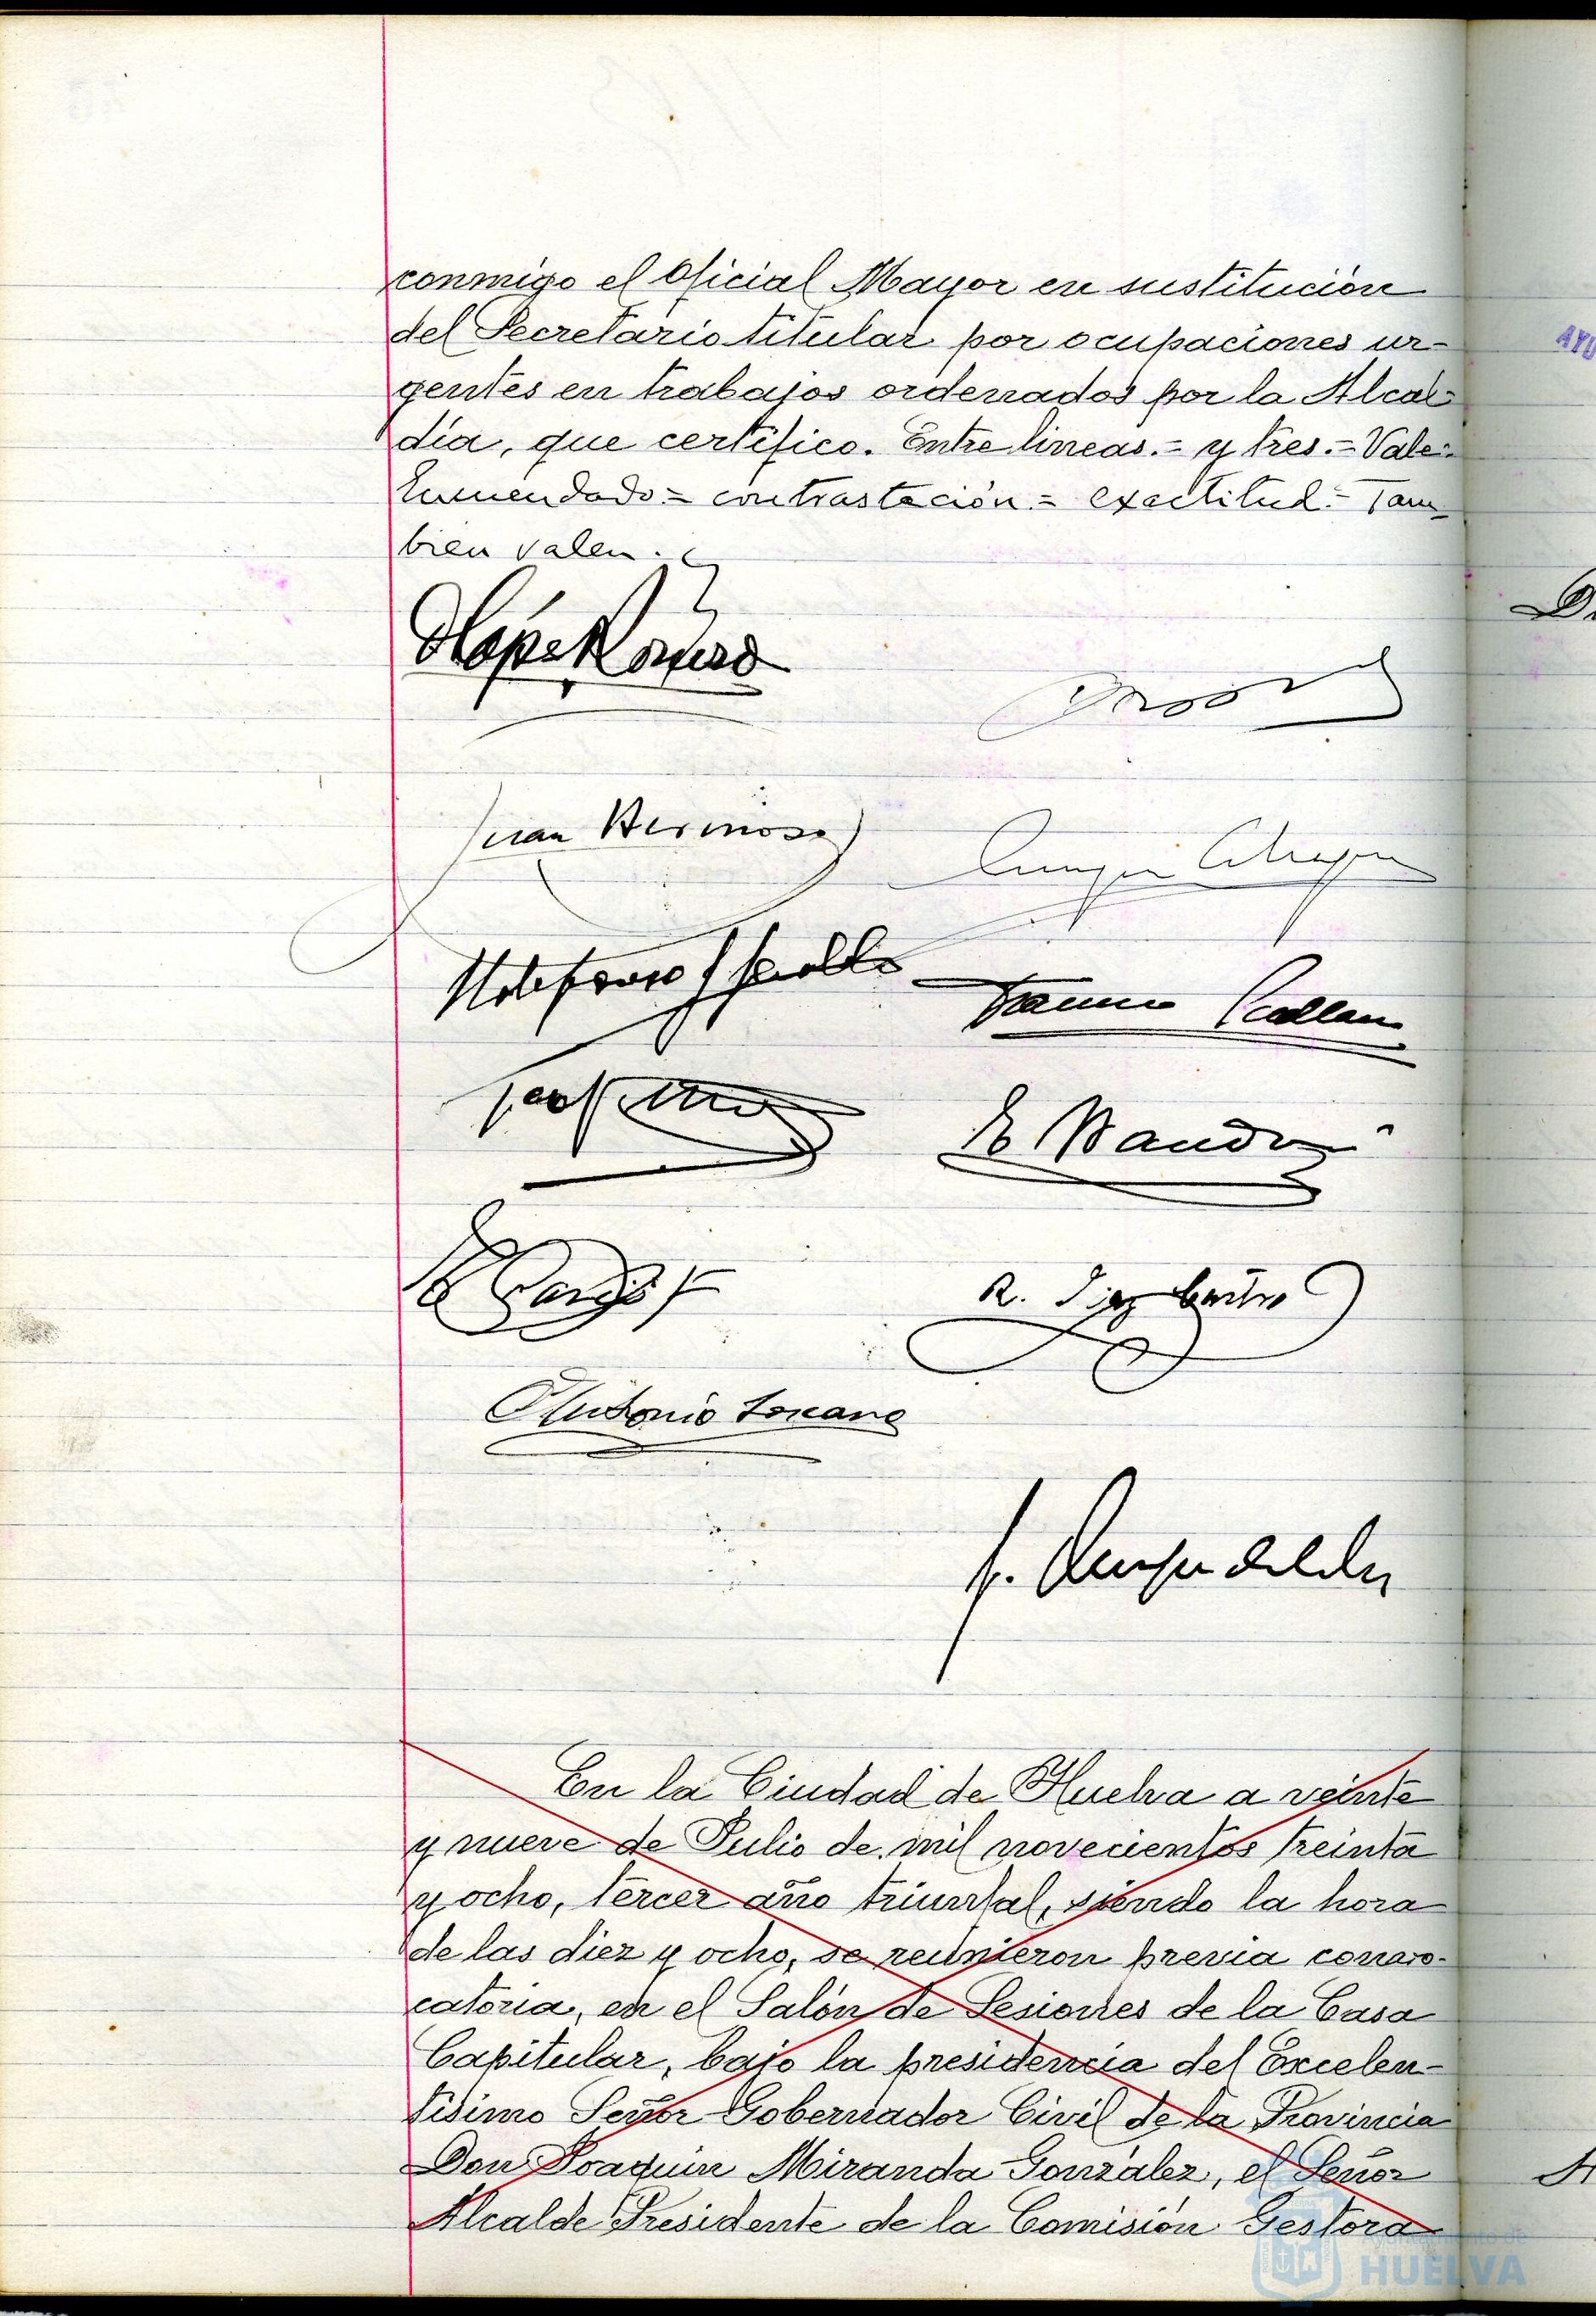 conmigo el Oficial Mayor en sustitución
del Secretario titular por ocupaciones ur-
gentes en trabajos ordenados por la Alcal-
día, que certifico. Entre lineas.= y tres.= Vale.=
Enmendado = contrastación = exactitud = Tam-
bien valen.
Juan Hermoso
R. Diaz
Antonio Lozano
En la Ciudad de Huelva a veinte
y nueve de Julio de mil novecientos treinta
y ocho, tercer año triunfal, siendo la hora
de las diez y ocho, se reunieron previa convo-
catoria, en el Salón de Sesiones de la Casa
Capitular, bajo la presidencia del Excelen-
tísimo Señor Gobernador Civil de la Provincia
Don Joaquin Miranda González, el Señor
Alcalde Presidente de la Comisión Gestora
Ayuntamiento de
HUELVA